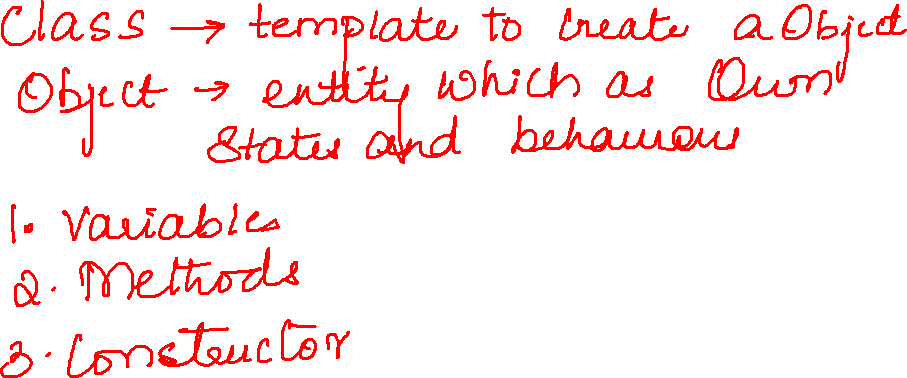 Class → template to create a Object
Object → entity which as Own
States and behaviours
1. Variables
2. Methods
3. Constructor